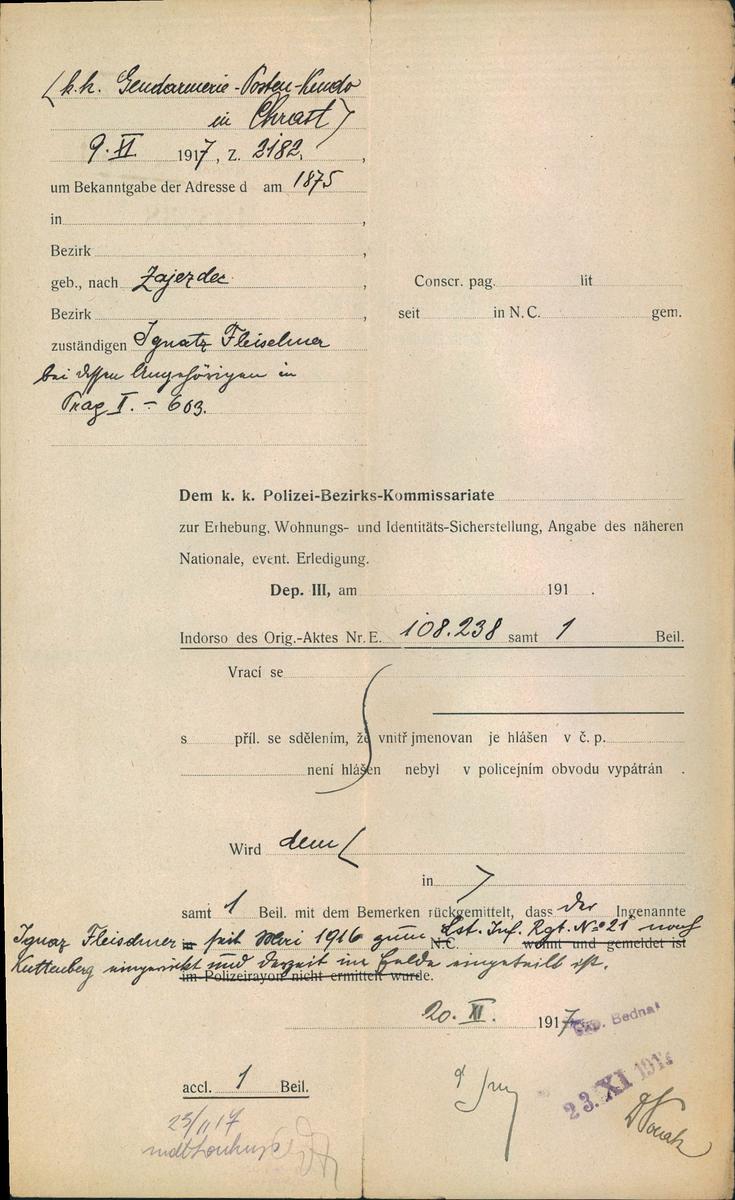 (k.k. Gendarmerie-Posten-Kmdo
in Chrast)
9. XI. 1917, Z. 2182,
um Bekanntgabe der Adresse d am 1875
in ,
Bezirk ,
geb., nach Zajezdec ,
Bezirk ,
zuständigen Ignatz Fleischner
bei dessen Angehörigen in
Prag I. – 603.
Conscr. pag. lit
seit in N.C. gem.
Dem k. k. Polizei-Bezirks-Kommissariate
zur Erhebung, Wohnungs- und Identitäts-Sicherstellung, Angabe des näheren
Nationale, event. Erledigung.
Dep. III, am 191 .
Indorso des Orig.-Aktes Nr. E. 108.238 samt 1 Beil.
Vrací se
s příl. se sdělením, že vnitř jmenovan je hlášen v č. p.
není hlášen nebyl v policejním obvodu vypátrán .
Wird dem (
in )
samt 1 Beil. mit dem Bemerken rückgemittelt, dass der Ingenannte
Ignaz Fleischner in seit Mai 1916 zum N.C. Lst. Inf. Rgt. No 21 nach wohnt und gemeldet ist
Kuttenberg eingerückt und derzeit im Felde eingeteilt ist.
im Polizeirayon nicht ermittelt wurde.
20. XI. 1917
Exp. Bednař
accl. 1 Beil.
23. XI 191
23/11 17